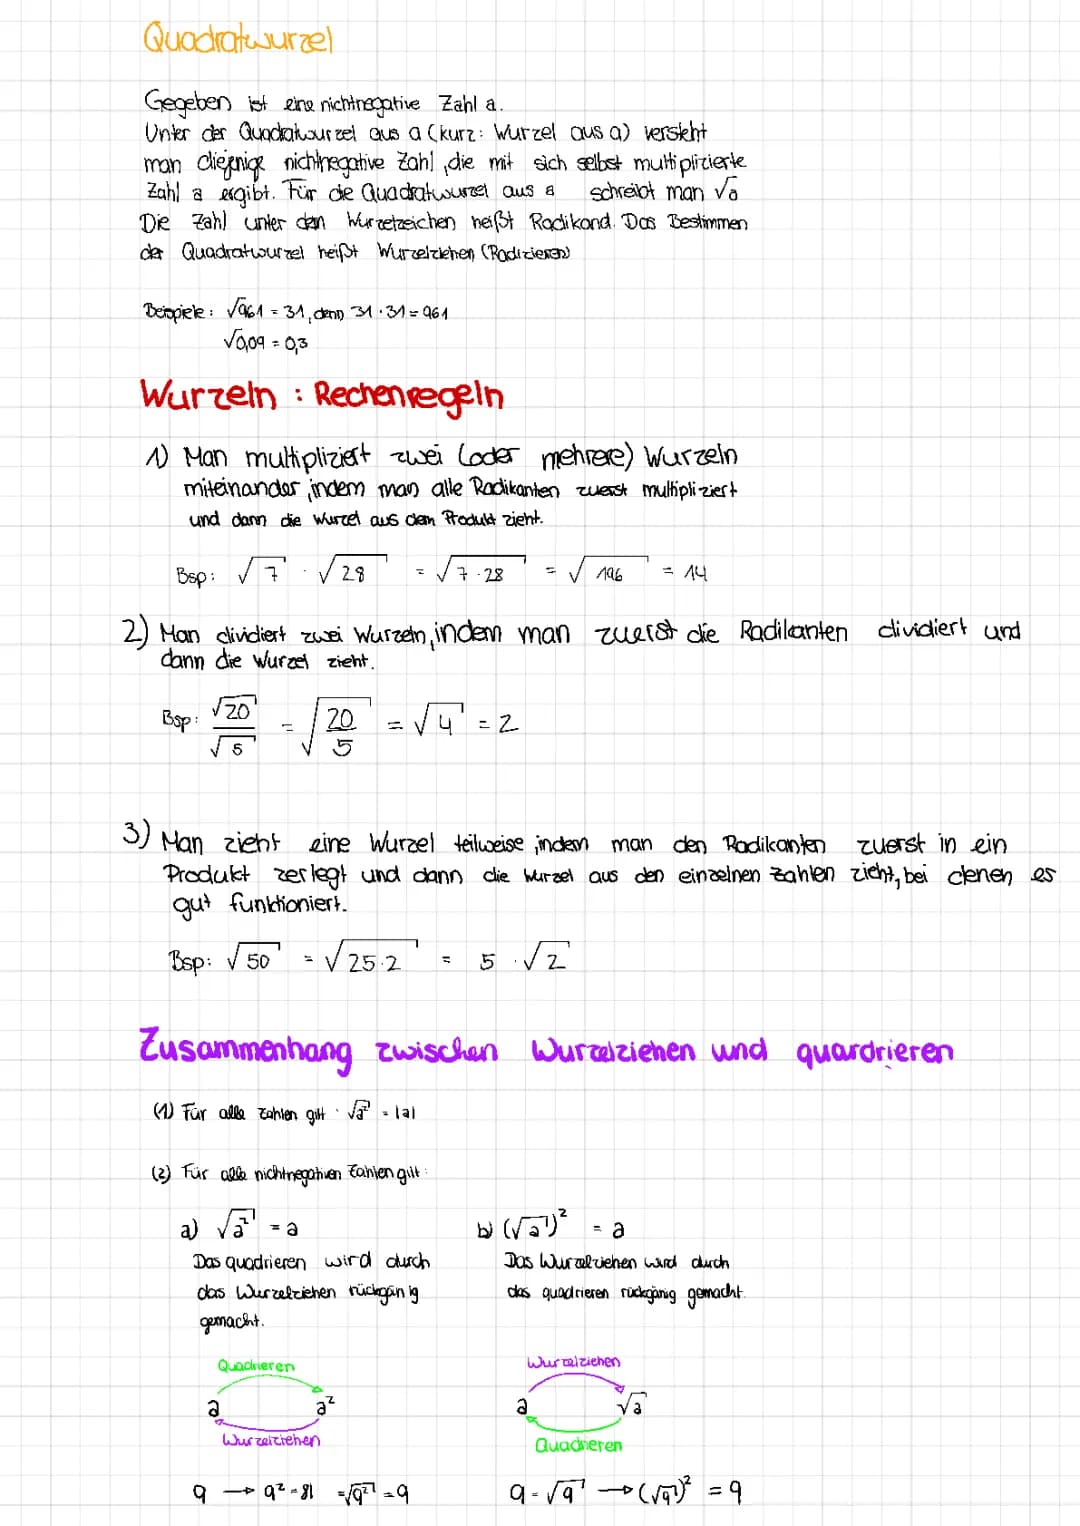 Quadratwurzel
Gegeben ist eine nichtnegative Zahl a.
Unter der Quadratwurzel aus a (kurz: Wurzel aus a) versteht
man diejenige nichtnegative Zahl, die mit sich selbst multiplizierte
Zahl a ergibt. Für die Quadratwurzel aus a schreibt man √a
Die Zahl unter den Wurzelzeichen heißt Radikand. Das Bestimmen
der Quadratwurzel heißt Wurzelziehen (Radizieren)
Beispiele: √961 = 31, denn 31 · 31 = 961
√0,09 = 0,3
Wurzeln : Rechenregeln
1) Man multipliziert zwei (oder mehrere) Wurzeln
miteinander, indem man alle Radikanten zuerst multipliziert
und dann die Wurzel aus dem Produkt zieht.
Bsp: √7 · √28 = √7·28 = √196 = 14
2) Man dividiert zwei Wurzeln, indem man zuerst die Radikanten dividiert und
dann die Wurzel zieht.
Bsp: √20/√5 = √20/5 = √4 = 2
3) Man zieht eine Wurzel teilweise, indem man den Radikanten zuerst in ein
Produkt zerlegt und dann die Wurzel aus den einzelnen Zahlen zieht, bei denen es
gut funktioniert.
Bsp: √50 = √25·2 = 5 · √2
Zusammenhang zwischen Wurzelziehen und quardrieren
(1) Für alle Zahlen gilt: √a² = |a|
(2) Für alle nichtnegativen Zahlen gilt:
a) √a² = a
b) (√a)² = a
Das quadrieren wird durch
das Wurzelziehen rückgänig
gemacht.
Das Wurzelziehen wird durch
das quadrieren rückgänig gemacht.
Quadrieren
a a²
Wurzelziehen
Wurzelziehen
a √a
Quadrieren
9 → 9² = 81 = √9² = 9
9 = √9 → (√9)² = 9